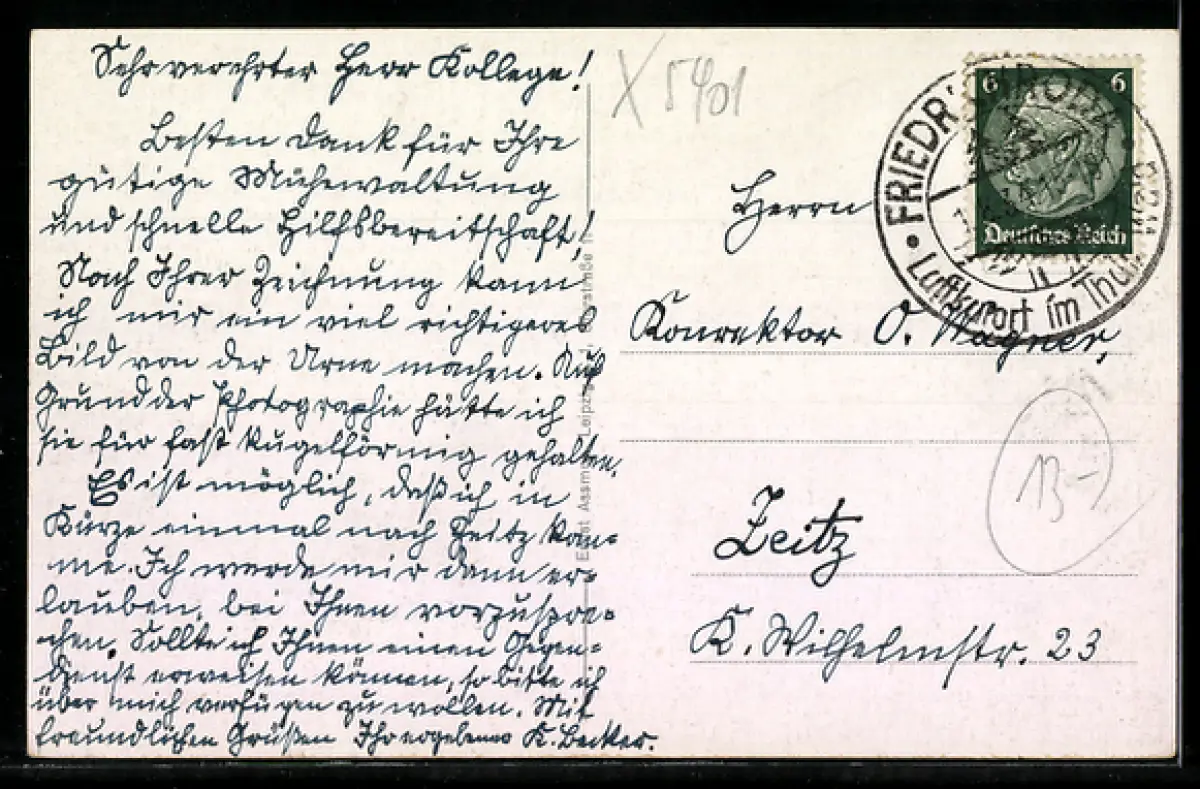 Sehr verehrter Herr Kollege!
Besten Dank für Ihre
gütige Mühewaltung
und schnelle Hilfsbereitschaft!
Nach Ihrer Zeichnung kann
ich mir ein viel richtigeres
Bild von der Urne machen. Auf
Grund der Photographie hätte ich
sie für fast kugelförmig gehalten.
Es ist möglich, daß ich in
Kürze einmal nach Zeitz kom=
me. Ich werde mir dann er=
lauben, bei Ihnen vorzuspre=
chen. Sollte ich Ihnen einen Gegen=
dienst erweisen können, so bitte ich
über mich verfügen zu wollen. Mit
freundlichen Grüßen Ihr ergebener K. Becker.
X 5401
6 6
Deutsches Reich
FRIEDRICHRODA
Luftkurort im Thür.
Herrn
Konrektor O. Wagner,
Zeitz
K. Wilhelmstr. 23
13-
Leipzig